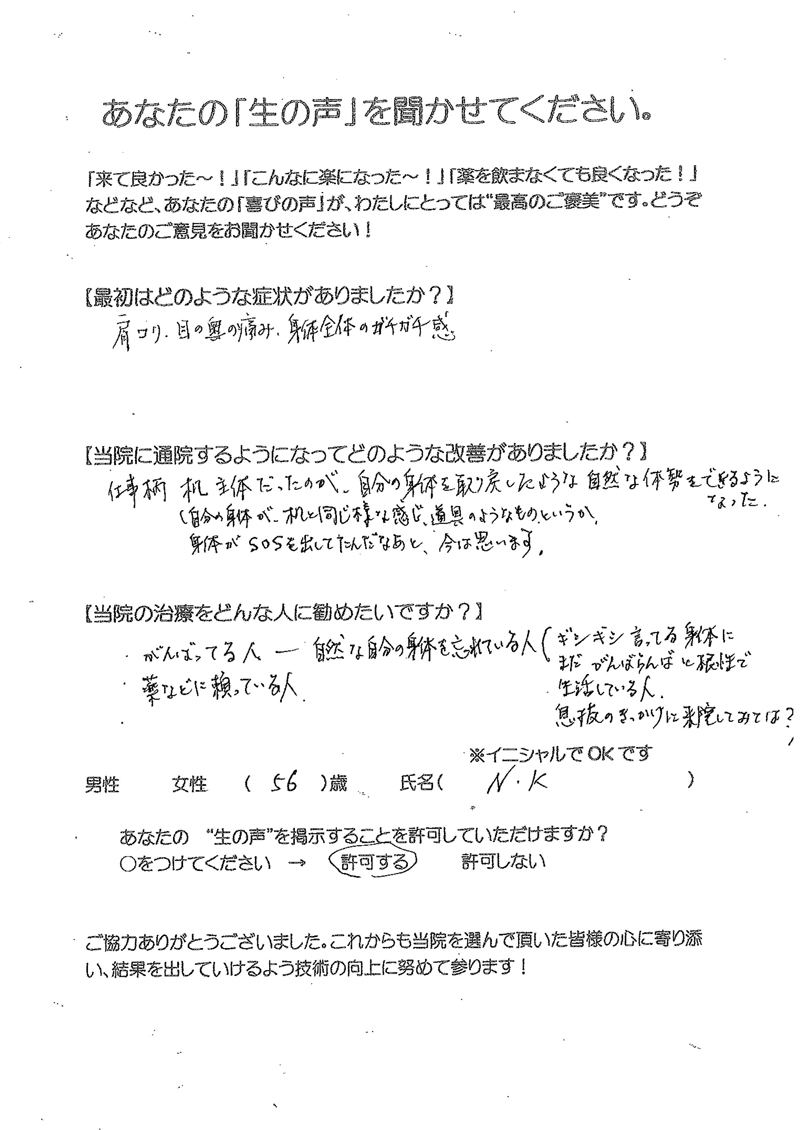 あなたの「生の声」を聞かせてください。
「来て良かった～！」「こんなに楽になった～！」「薬を飲まなくても良くなった！」
などなど、あなたの「喜びの声」が、わたしにとっては“最高のご褒美”です。どうぞ
あなたのご意見をお聞かせください！
【最初はどのような症状がありましたか？】
肩コリ、目の奥の痛み、身体全体のガチガチ感
【当院に通院するようになってどのような改善がありましたか？】
仕事柄 机主体だったのが、自分の身体を取り戻したような自然な体勢をできるように
なった.
(自分の身体が、机と同じ様な感じ、道具のようなものというか、
身体がSOSを出してたんだなあと、今は思います。
【当院の治療をどんな人に勧めたいですか？】
・がんばってる人 ― 自然な自分の身体を忘れている人(ギシギシ言ってる身体に
まだがんばらんばと根性で
・薬などに頼っている人
生活している人.
息抜のきっかけに来院してみては?
※イニシャルでOKです
男性 女性 ( 56 )歳 氏名( N・K )
あなたの “生の声”を掲示することを許可していただけますか？
○をつけてください → 許可する 許可しない
ご協力ありがとうございました。これからも当院を選んで頂いた皆様の心に寄り添
い、結果を出していけるよう技術の向上に努めて参ります！